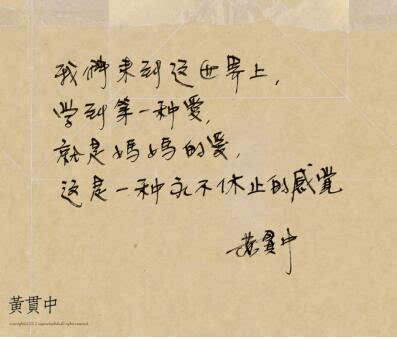 我們來到这世界上,
学到第一种愛,
就是媽媽的愛,
这是一种永不休止的感覺
黃貫中
黃貫中